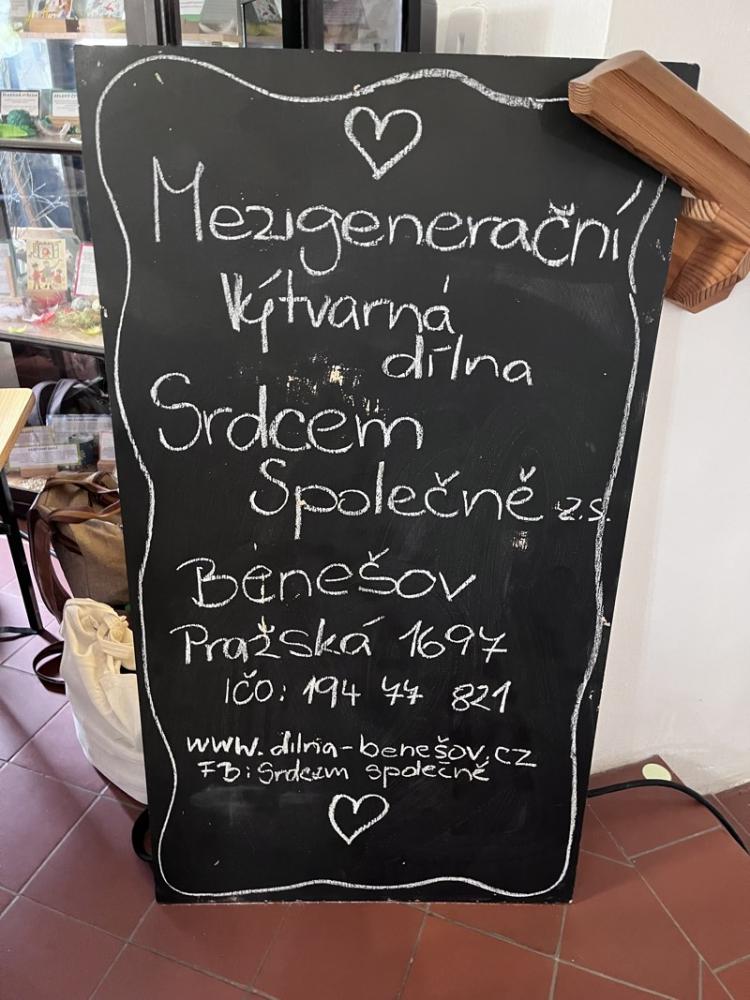 Mezigenerační
Výtvarná
dílna
Srdcem
Společně z.s.
Benešov
Pražská 1697
IČO: 194 77 821
www.dilna-benešov.cz
FB: Srdcem společně